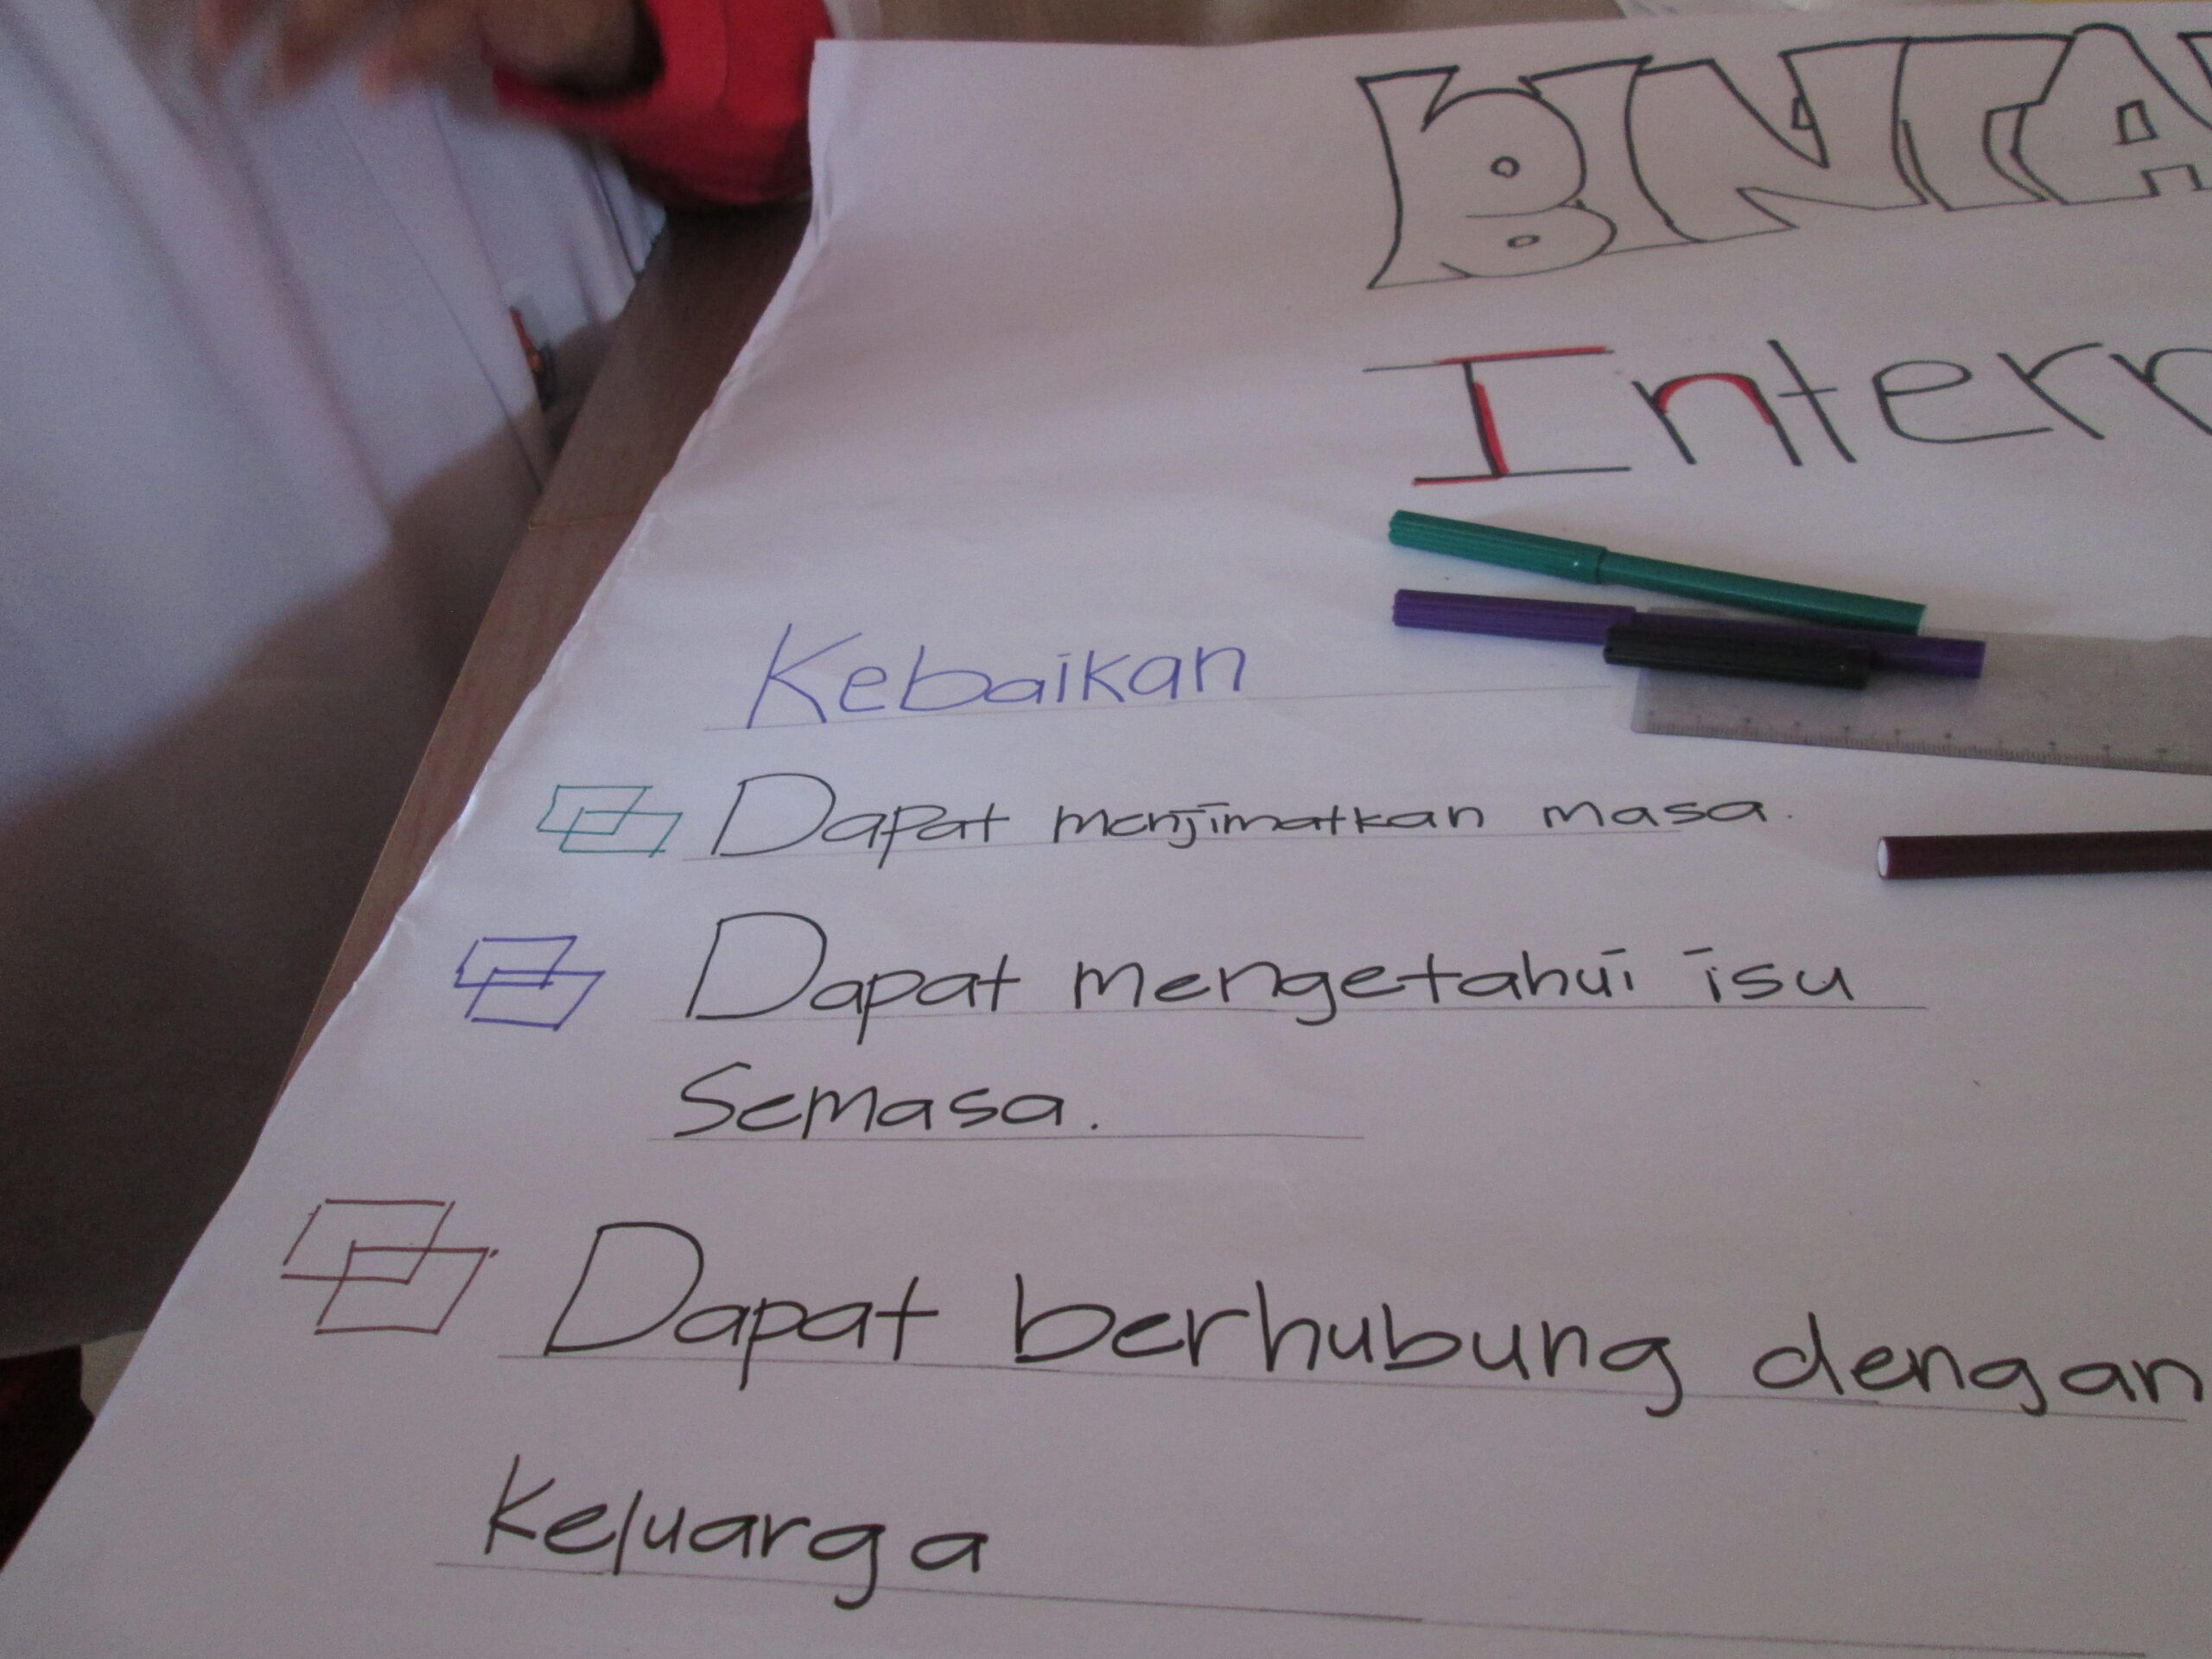 BINTA
Intern
Kebaikan
Dapat menjimatkan masa.
Dapat mengetahui isu
Semasa.
Dapat berhubung dengan
Keluarga